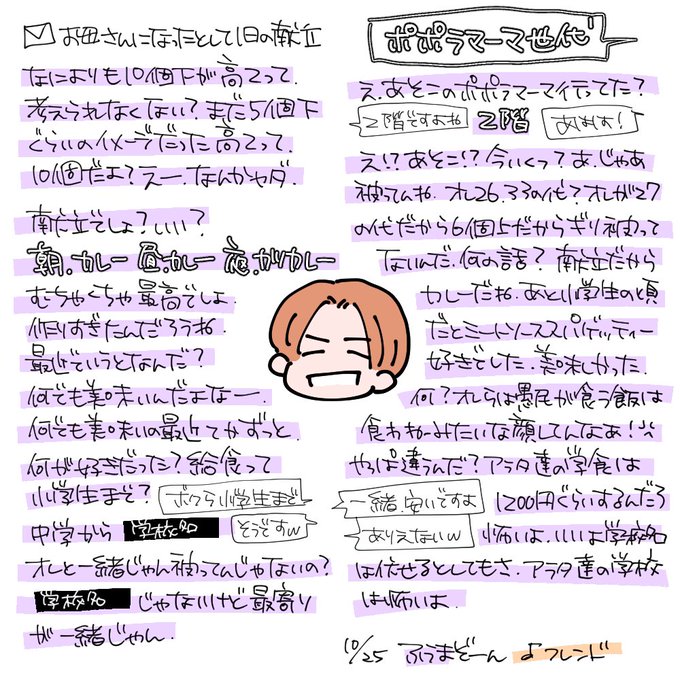 お母さんになったとして1日の献立
なによりも10個下が高2って.
考えられなくない?まだ5個下
ぐらいのイメージだった高2って.
10個だよ?えー.なんかヤダ.
献立でしょ?いい?
朝.カレー 昼.カレー 夜.がカレー
むちゃくちゃ最高でしょ.
作りすぎたんだろうね.
最近でいうとなんだ?
何でも美味いんだよなー.
何でも美味いの最近てかずっと.
何が好きだった?給食って
小学生まで? ボクら小学生まで
中学から 学校名 そうですw
オレと一緒じゃん被ってんじゃないの?
学校名 じゃないけど最寄り
が一緒じゃん.
ポポラマーマ世代
え.あそこのポポラマーマ行ってた?
2階ですよね 2階 あはは!
え!?あそこ!?今いくつ?あ.じゃあ
被ってんね.オレ26.33の代?オレが27
の代だから6個上だからギリ被って
ないんだ.何の話?献立だから
カレーだね.あと小学生の頃
だとミートソーススパゲッティー
好きでした.美味しかった.
何?オレらは愚民が食う飯は
食わねーみたいな顔してんなあ!
やっぱ違うんだ?アラタ達の学食は
一緒.安いですよ 1200円ぐらいするんだろ
ありえないw 怖いよ.いいよ学校名
は伏せるとしてもさ.アラタ達の学校
は怖いよ.
10/25 ふうまどーん ♪フレンド